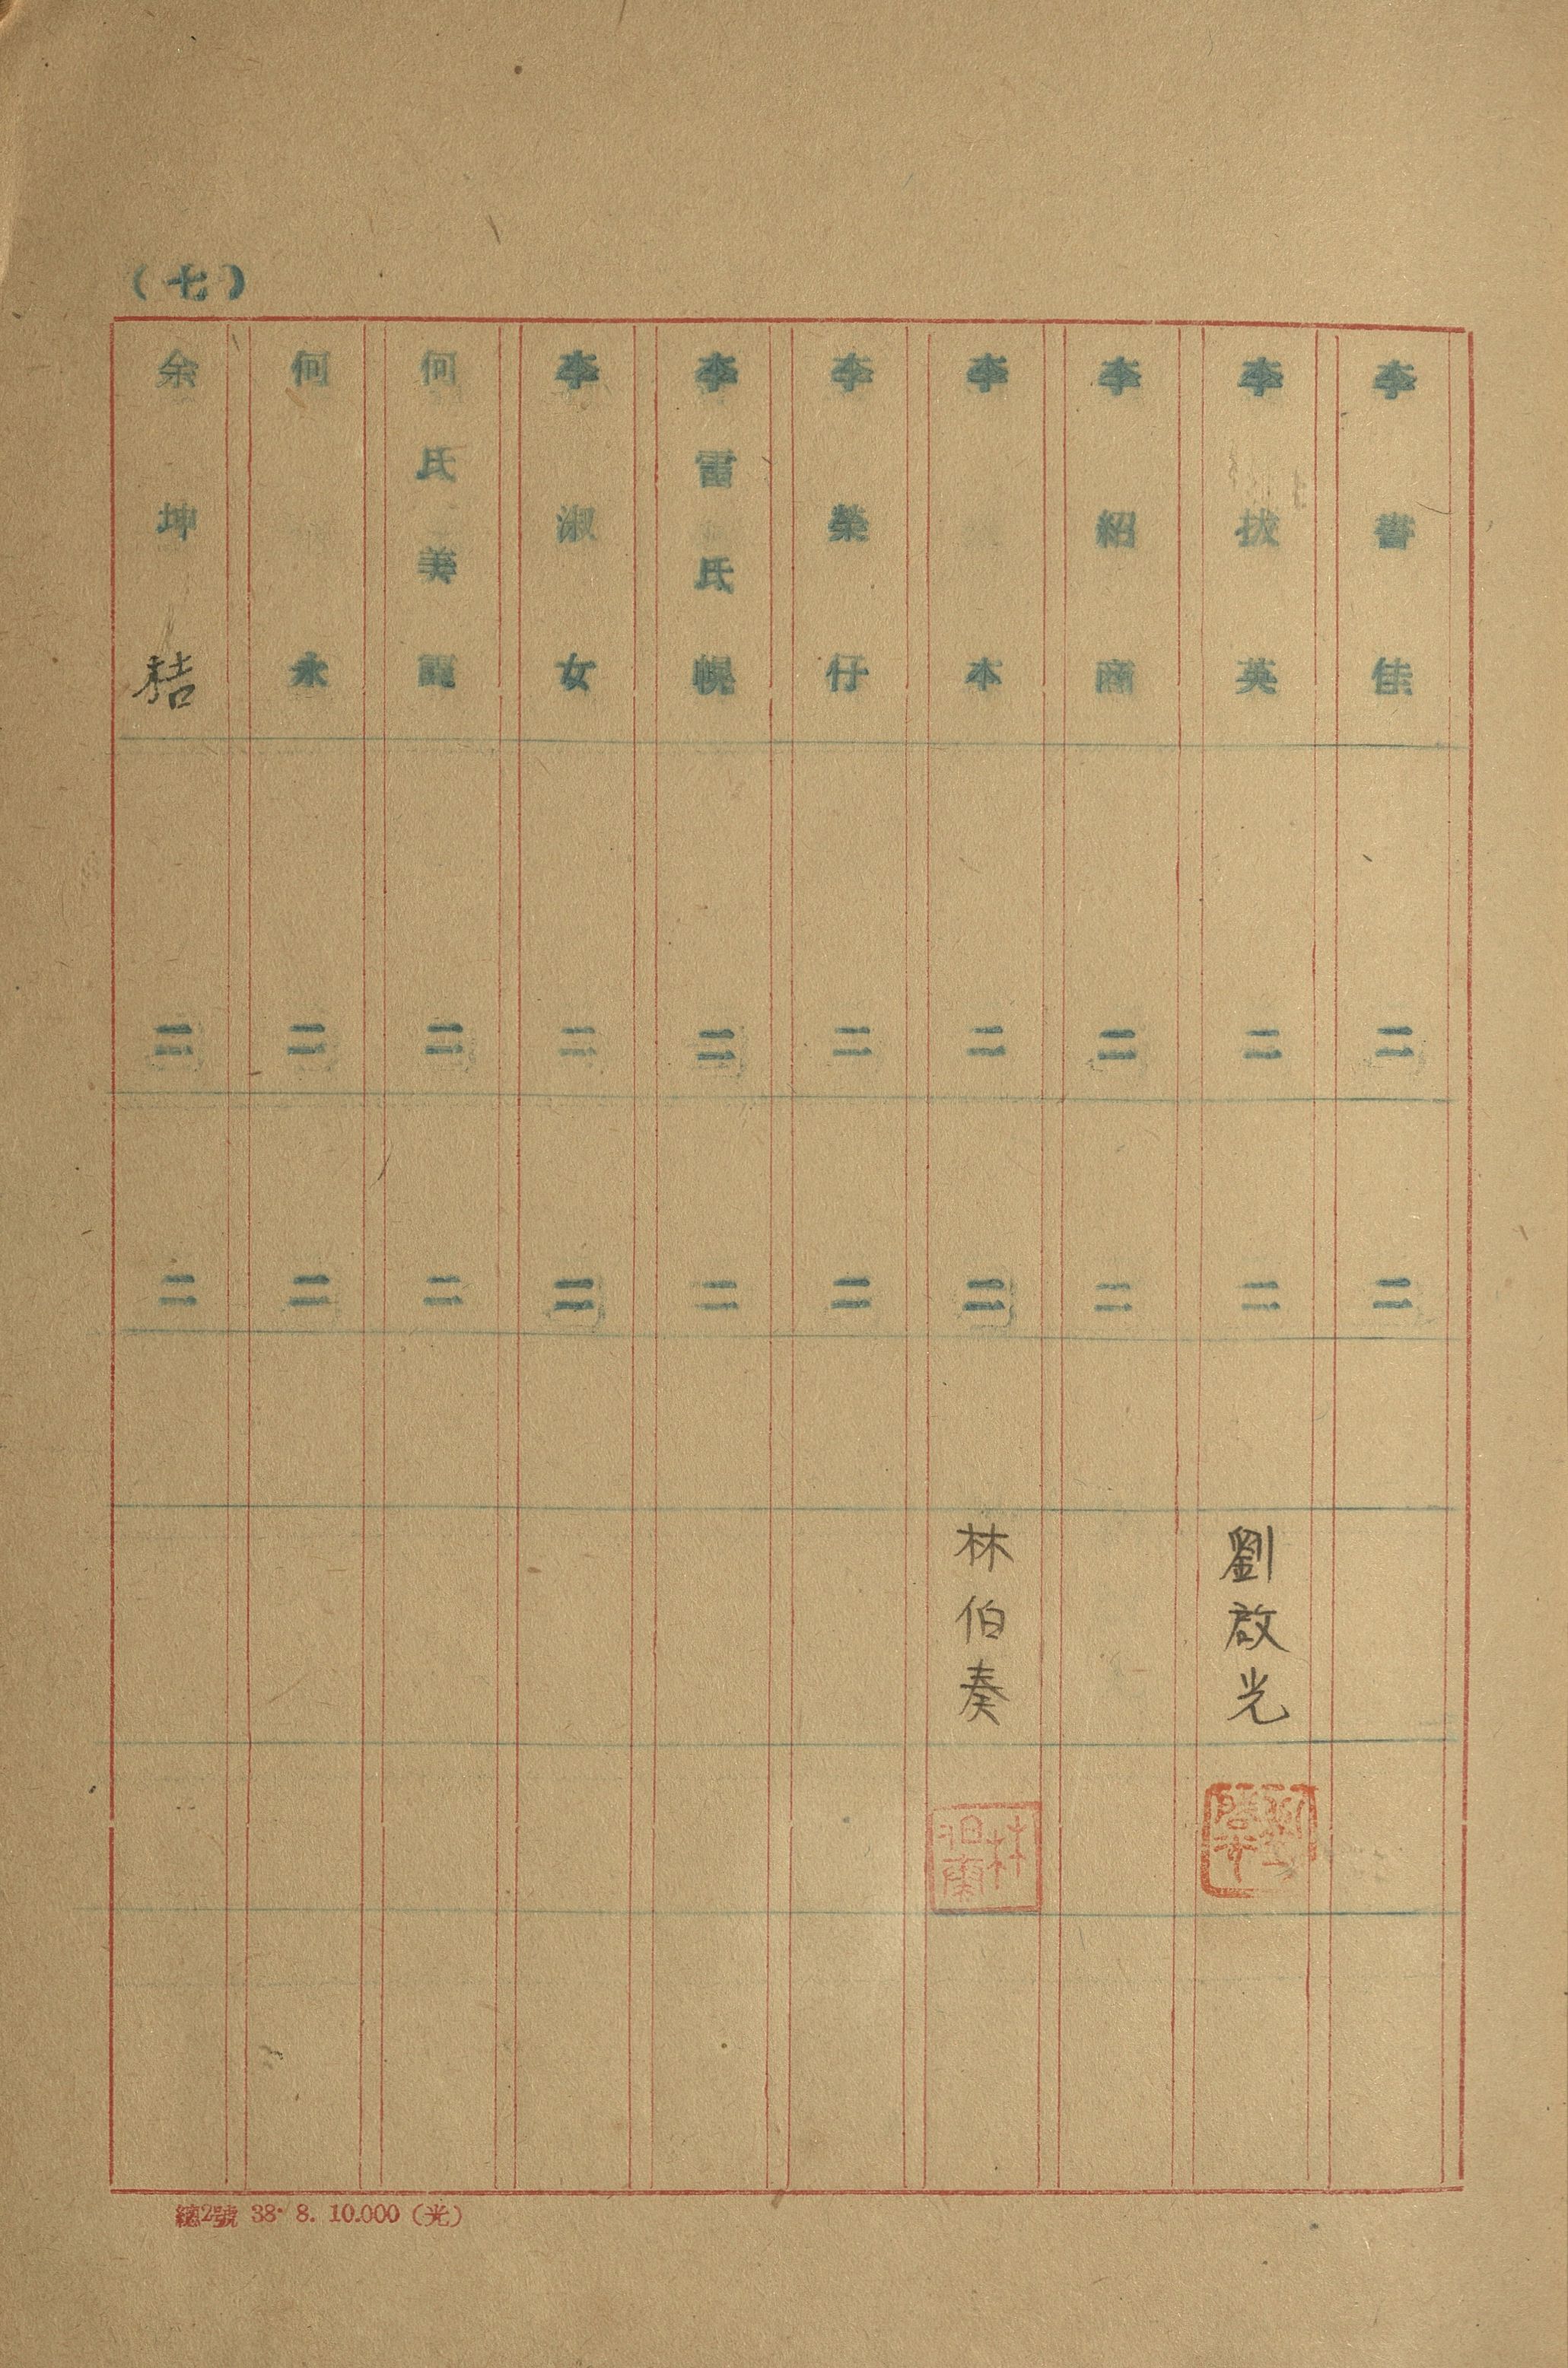 (七)
李書佳 二 二
李拔英 二 二 劉啟光
李紹商 二 二
李本 二 二 林伯奏 林伯奏
李榮仔 二 二
李雷氏幌 二 二
李淑女 二 二
何氏美 二 二
何永 二 二
余坤秸 二 二
總2號 38. 8. 10.000 (光)